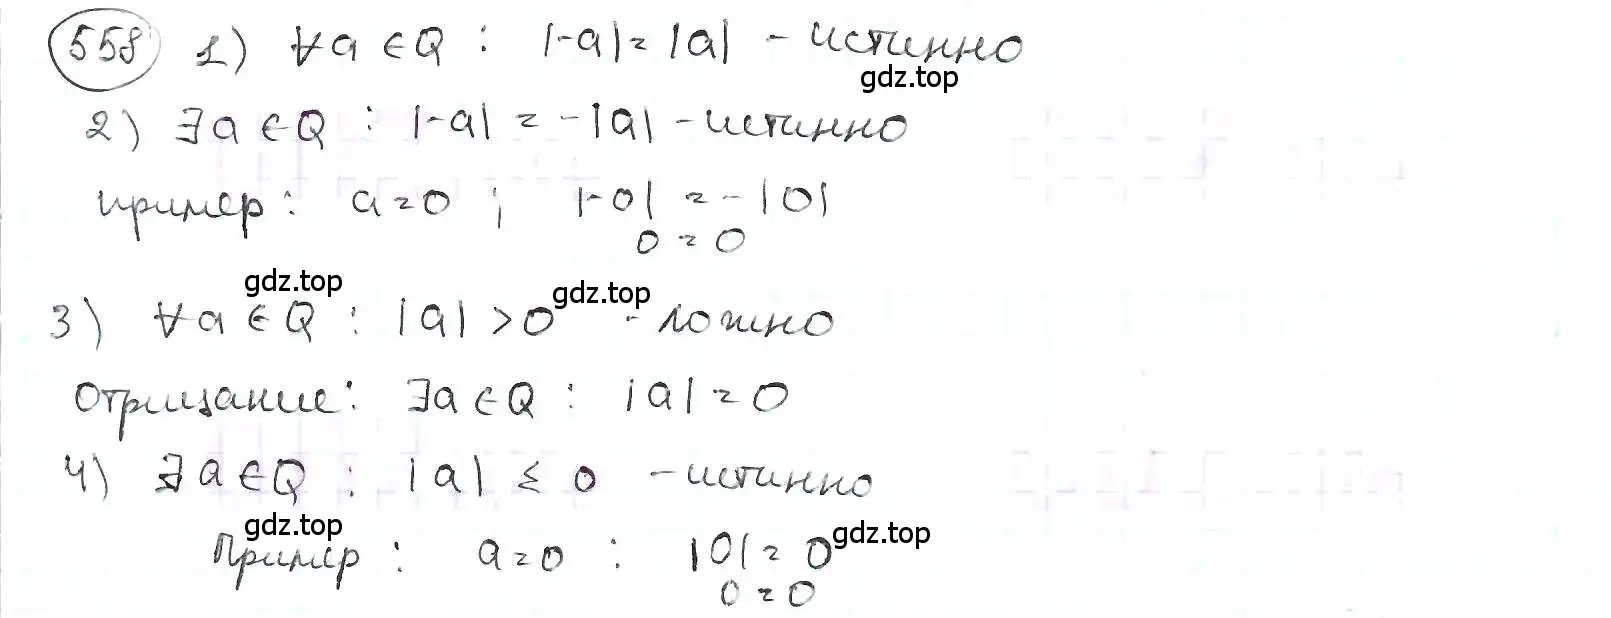 558 1) ∀a ∈ Q : |-a| = |a| - истинно
gdz.top
2) ∃a ∈ Q : |-a| = -|a| - истинно
пример: a=0 ; |-0| = -|0|
0 = 0
gdz.top gdz.top
3) ∀a ∈ Q : |a| > 0 - ложно
Отрицание: ∃a ∈ Q : |a| = 0
4) ∃a ∈ Q : |a| ≤ 0 - истинно
gdz.top gdz.top
Пример : a=0 : |0| = 0
0 = 0